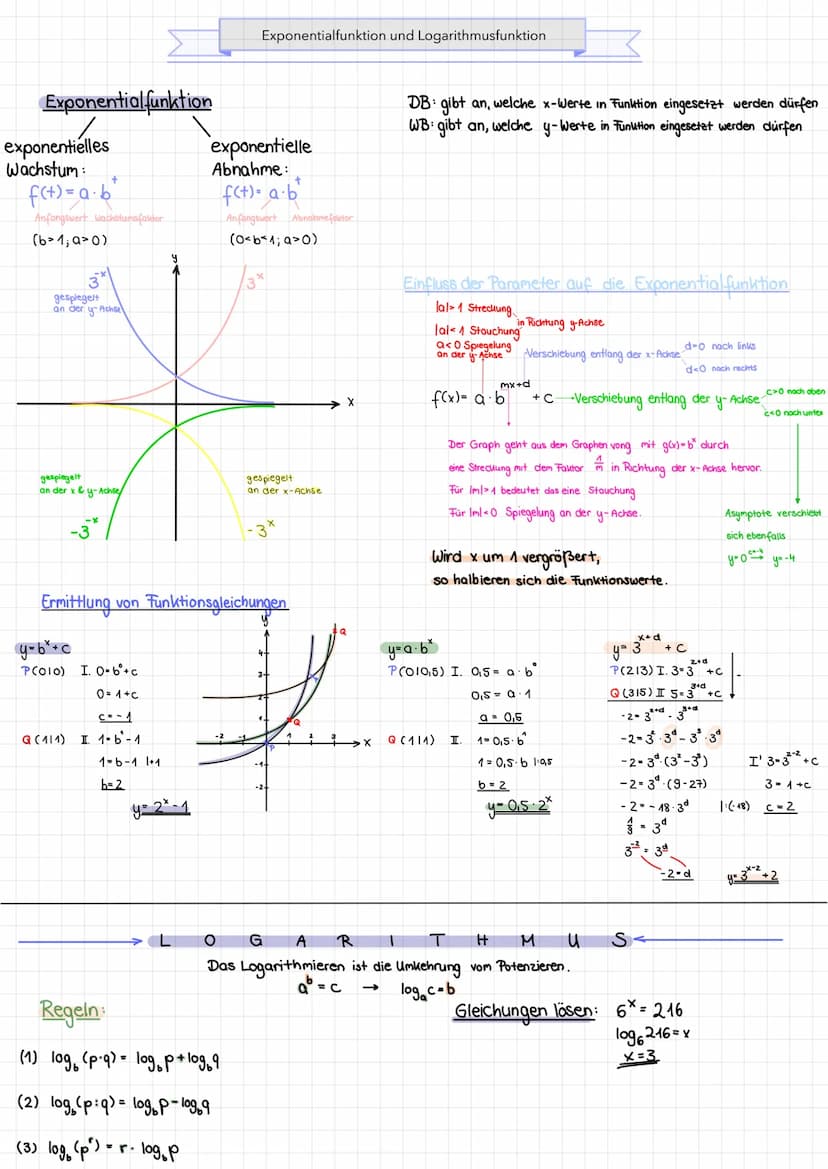 Exponentialfunktion und Logarithmusfunktion
Exponentialfunktion
DB: gibt an, welche x-Werte in Funktion eingesetzt werden dürfen
WB: gibt an, welche y-Werte in Funktion eingesetzt werden dürfen
exponentielles Wachstum:
f(t) = a · b^t
Anfangswert Wachstumsfaktor
(b>1; a>0)
exponentielle Abnahme:
f(t) = a · b^t
Anfangswert Abnahmefaktor
(0<b<1; a>0)
y
x
3^-x
gespiegelt
an der y-Achse
3^x
gespiegelt
an der x & y-Achse
-3^-x
gespiegelt
an der x-Achse
-3^x
Einfluss der Parameter auf die Exponentialfunktion
|a|>1 Streckung
|a|<1 Stauchung
in Richtung y-Achse
a<0 Spiegelung
an der y-Achse
Verschiebung entlang der x-Achse
d=0 nach links
d<0 nach rechts
f(x)= a · b^mx+d + c
Verschiebung entlang der y-Achse
c>0 nach oben
c<0 nach unten
Der Graph geht aus dem Graphen vong mit g(x)=b^x durch
eine Streckung mit dem Faktor 1/m in Richtung der x-Achse hervor.
Für |m|>1 bedeutet das eine Stauchung
Für |m|<0 Spiegelung an der y-Achse.
Asymptote verschiebt
sich ebenfalls
y=0 → y=-4
Wird x um 1 vergrößert,
so halbieren sich die Funktionswerte.
Ermittlung von Funktionsgleichungen
y=b^x+c
P(0|0) I. 0=b^0+c
0=1+c
c=-1
Q(1|1) II. 1=b^1-1
1=b-1 |+1
b=2
y=2^x-1
y
4
3
2
1
-2 -1 1 2 3
x
-1
-2
P
Q
Q
y=a·b^x
P(0|0,5) I. 0,5= a·b^0
0,5= a·1
a=0,5
Q(1|1) II. 1=0,5·b^1
1=0,5·b |:0,5
b=2
y=0,5·2^x
y=3^x+d + c
P(2|3) I. 3=3^2+d +c
Q(3|5) II 5=3^3+d +c
-
-2=3^2+d - 3^3+d
-2=3^2·3^d - 3^3·3^d
-2=3^d·(3^2-3^3)
-2=3^d·(9-27)
-2=-18·3^d |:(-18)
1/9 = 3^d
3^-2 = 3^d
-2=d
I' 3=3^2-2+c
3=1+c
c=2
y=3^x-2+2
LOGARITHMUS
Das Logarithmieren ist die Umkehrung vom Potenzieren.
a^b=c → log_a c=b
Regeln:
(1) log_b(p·q) = log_b p + log_b q
(2) log_b(p:q) = log_b p - log_b q
(3) log_b(p^r) = r · log_b p
Gleichungen lösen:
6^x = 216
log_6 216=x
x=3